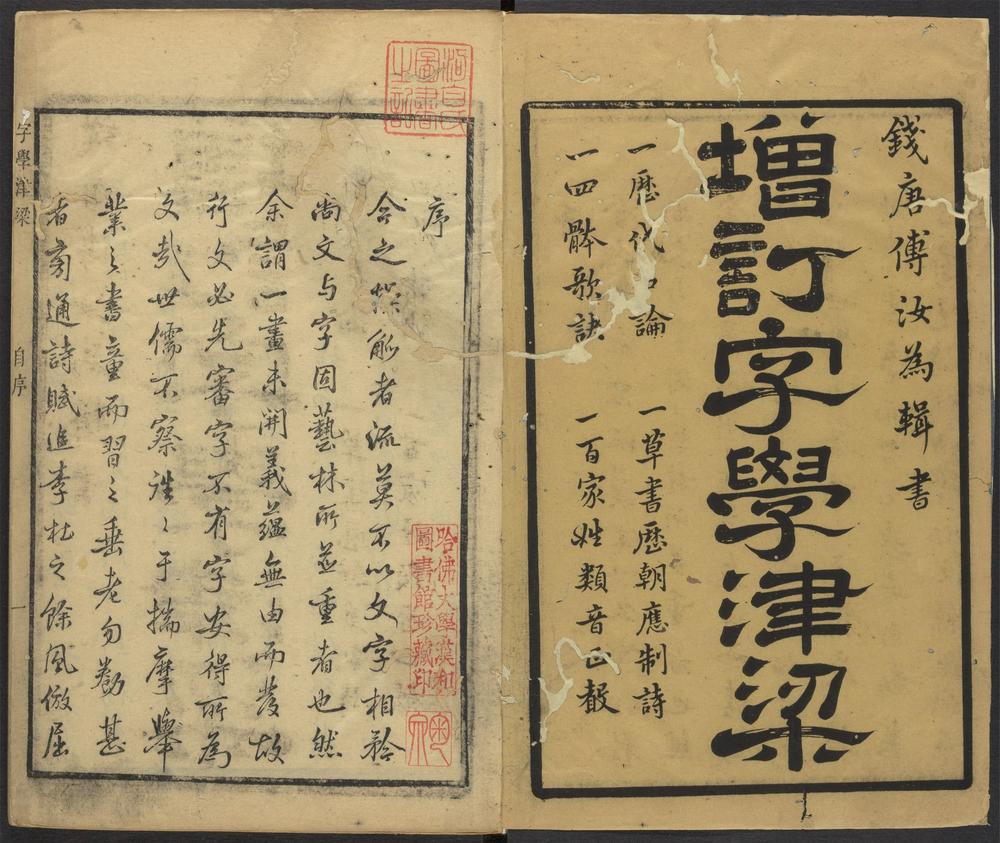 錢唐傅汝為輯書
增訂字學津梁
一歷代口論 一草書歷朝應制詩
一四骵歌訣 一百家姓類音正㲄
序
今之撡觚者流莫不以文字相矜
尚文与字固藝林所並重者也然
余謂一畫未開義蘊無由而發故
行文必先審字不有字安得所為
文哉世儒不察詵〻于揣摩舉
業之書童而習之垂老勿勌甚
者旁通詩賦追李杜之餘風倣屈
字學津梁
自序
一
哈佛大學漢和
圖書館珍藏印